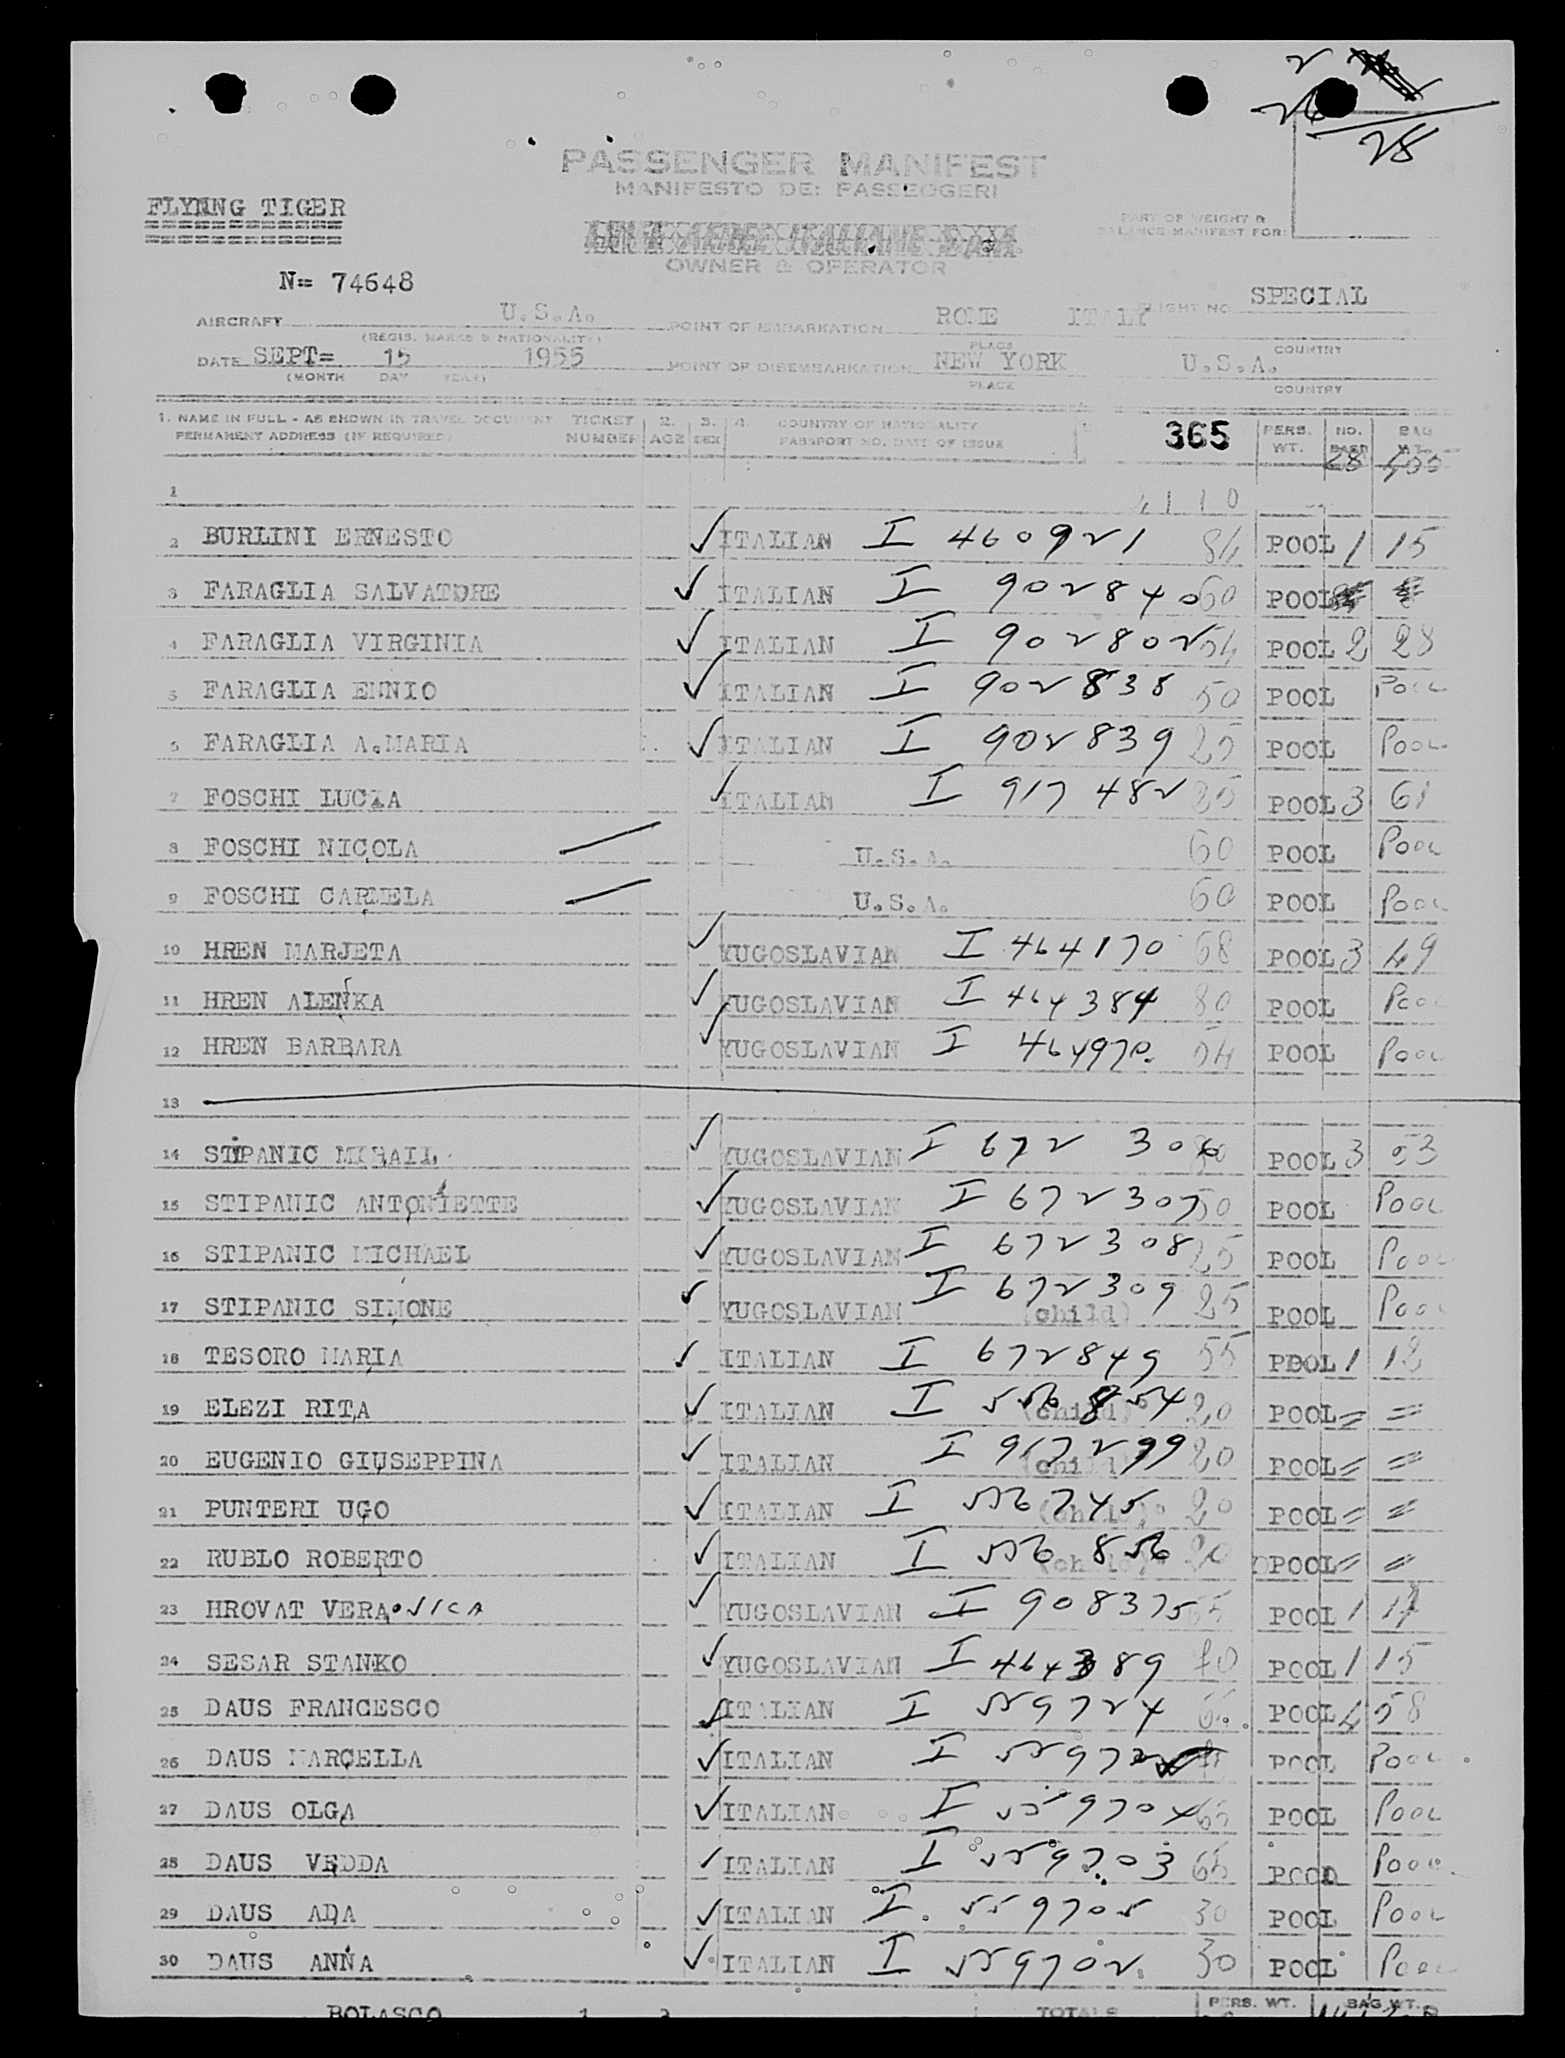 2
26
28
PASSENGER MANIFEST
MANIFESTO DEI PASSEGGERI
FLYNNG TIGER
OWNER & OPERATOR
PART OF WEIGHT &
BALANCE MANIFEST FOR:
N= 74648
AIRCRAFT U.S.A. POINT OF EMBARKATION ROME ITALY FLIGHT NO. SPECIAL
(REGIS. MARKS & NATIONALITY) PLACE COUNTRY
DATE SEPT= 15 1955 POINT OF DISEMBARKATION NEW YORK U.S.A.
(MONTH DAY YEAR) PLACE COUNTRY
1. NAME IN FULL - AS SHOWN IN TRAVEL DOCUMENT TICKET 2. 3. 4. COUNTRY OF NATIONALITY 365 PERS. NO. BAG
PERMANENT ADDRESS (IF REQUIRED) NUMBER AGE SEX PASSPORT NO. DATE OF ISSUE WT. BAGS WT.
28
1
2 BURLINI ERNESTO ✓ ITALIAN I 460921 84 POOL 1 15
3 FARAGLIA SALVATORE ✓ ITALIAN I 902840 60 POOL
4 FARAGLIA VIRGINIA ✓ ITALIAN I 902802 54 POOL 2 28
5 FARAGLIA ENNIO ✓ ITALIAN I 902838 50 POOL Pool
6 FARAGLIA A.MARIA ✓ ITALIAN I 902839 25 POOL Pool
7 FOSCHI LUCIA ✓ ITALIAN I 917482 85 POOL 3 61
8 FOSCHI NICOLA U.S.A. 60 POOL Pool
9 FOSCHI CARMELA U.S.A. 60 POOL Pool
10 HREN MARJETA ✓ YUGOSLAVIAN I 464170 68 POOL 3 49
11 HREN ALENKA ✓ YUGOSLAVIAN I 464384 80 POOL Pool
12 HREN BARBARA ✓ YUGOSLAVIAN I 464970 54 POOL Pool
13
14 STIPANIC MIHAIL ✓ YUGOSLAVIAN I 672 306 80 POOL 3 53
15 STIPANIC ANTONIETTE ✓ YUGOSLAVIAN I 672307 50 POOL Pool
16 STIPANIC MICHAEL ✓ YUGOSLAVIAN I 672308 25 POOL Pool
17 STIPANIC SIMONE ✓ YUGOSLAVIAN I 672309 (child) 25 POOL Pool
18 TESORO MARIA ✓ ITALIAN I 672849 55 POOL 1 18
19 ELEZI RITA ✓ ITALIAN I 556854 (child) 20 POOL = =
20 EUGENIO GIUSEPPINA ✓ ITALIAN I 917299 (child) 20 POOL = =
21 PUNTERI UGO ✓ ITALIAN I 556745 (child) 20 POOL = =
22 RUBLO ROBERTO ✓ ITALIAN I 556 856 (child) 20 POOL = =
23 HROVAT VERAONICA ✓ YUGOSLAVIAN I 908375 55 POOL 1 17
24 SESAR STANKO ✓ YUGOSLAVIAN I 464389 70 POOL 1 15
25 DAUS FRANCESCO ✓ ITALIAN I 559724 POOL 4 58
26 DAUS MARCELLA ✓ ITALIAN POOL Pool
27 DAUS OLGA ✓ ITALIAN I 559704 65 POOL Pool
28 DAUS VEDDA ✓ ITALIAN I 559703 65 POOL Pool
29 DAUS ADA ✓ ITALIAN I 559705 30 POOL Pool
30 DAUS ANNA ✓ ITALIAN I 559702 30 POOL Pool
BOLASCO TOTALS PERS. WT. BAG WT.